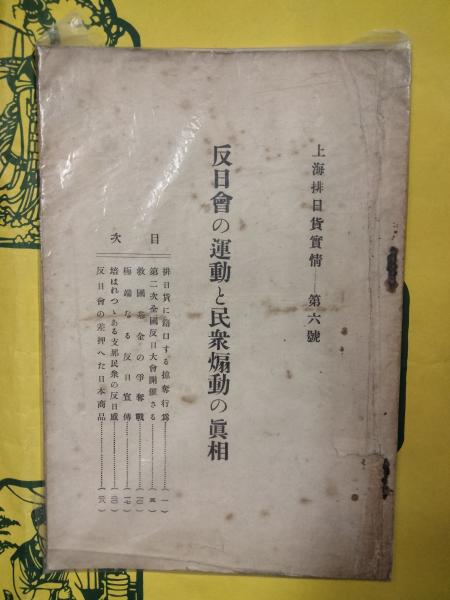 上海排日貨實情——第六號
反日會の運動と民衆煽動の眞相
目次
排日貨に藉口する掠奪行爲……(一)
第二次全國反日大會開催さる……(五)
救國基金の爭奪戰……(一〇)
極端なる反日宣傳……(一七)
培はれつゝある支那民衆の反日感……(二〇)
反日會の差押へた日本商品……(二八)